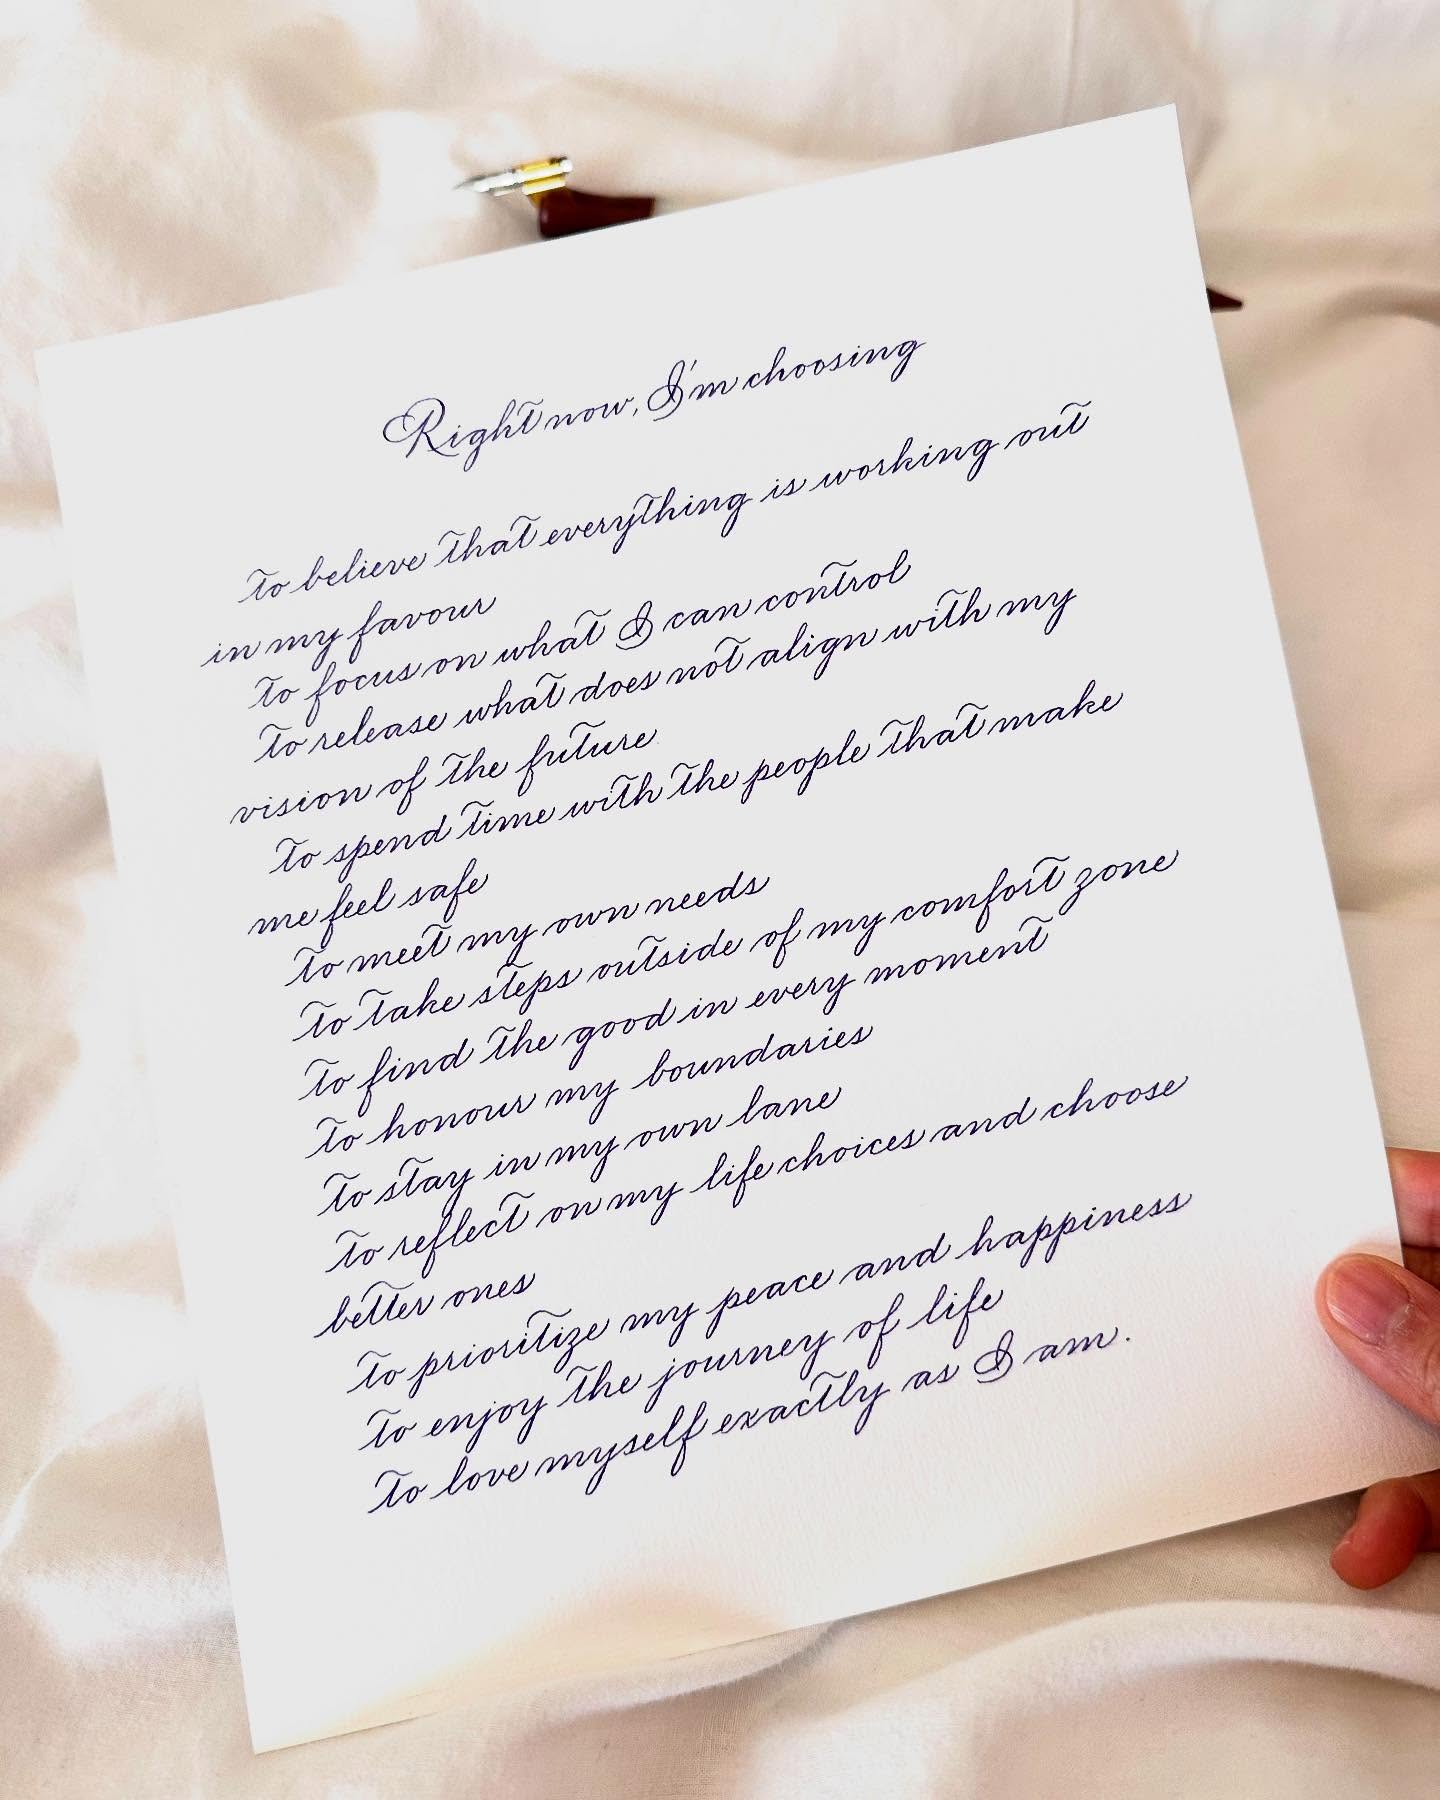 Right now, I'm choosing
to believe that everything is working out
in my favour
to focus on what I can control
to release what does not align with my
vision of the future
to spend time with the people that make
me feel safe
to meet my own needs
to take steps outside of my comfort zone
to find the good in every moment
to honour my boundaries
to stay in my own lane
to reflect on my life choices and choose
better ones
to prioritize my peace and happiness
to enjoy the journey of life
to love myself exactly as I am.